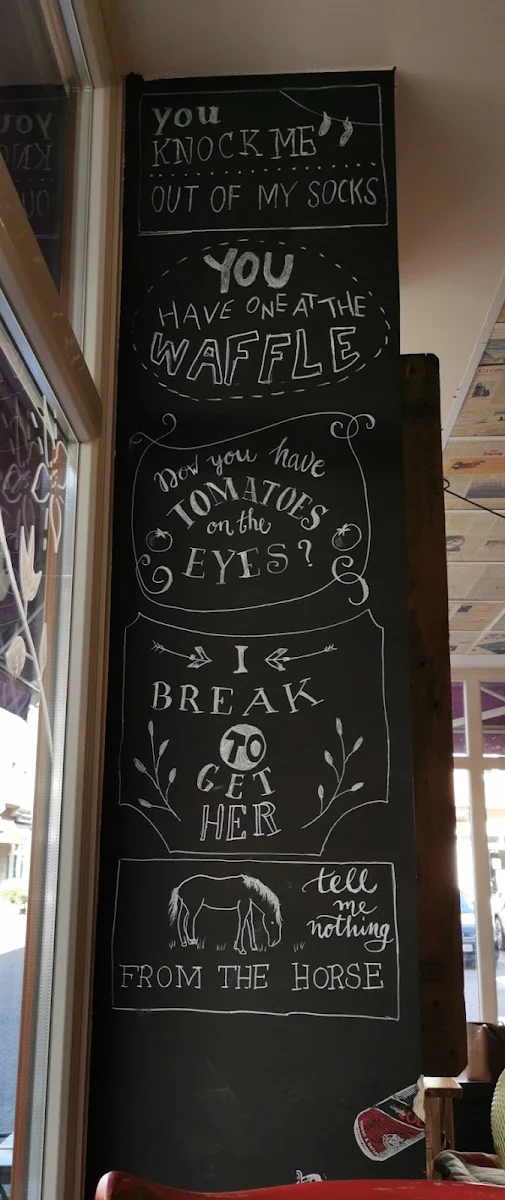 you
KNOCK ME
OUT OF MY SOCKS
YOU
HAVE ONE AT THE
WAFFLE
Now you have
TOMATOES
on the
EYES?
I
BREAK
TO
GET
HER
tell
me
nothing
FROM THE HORSE